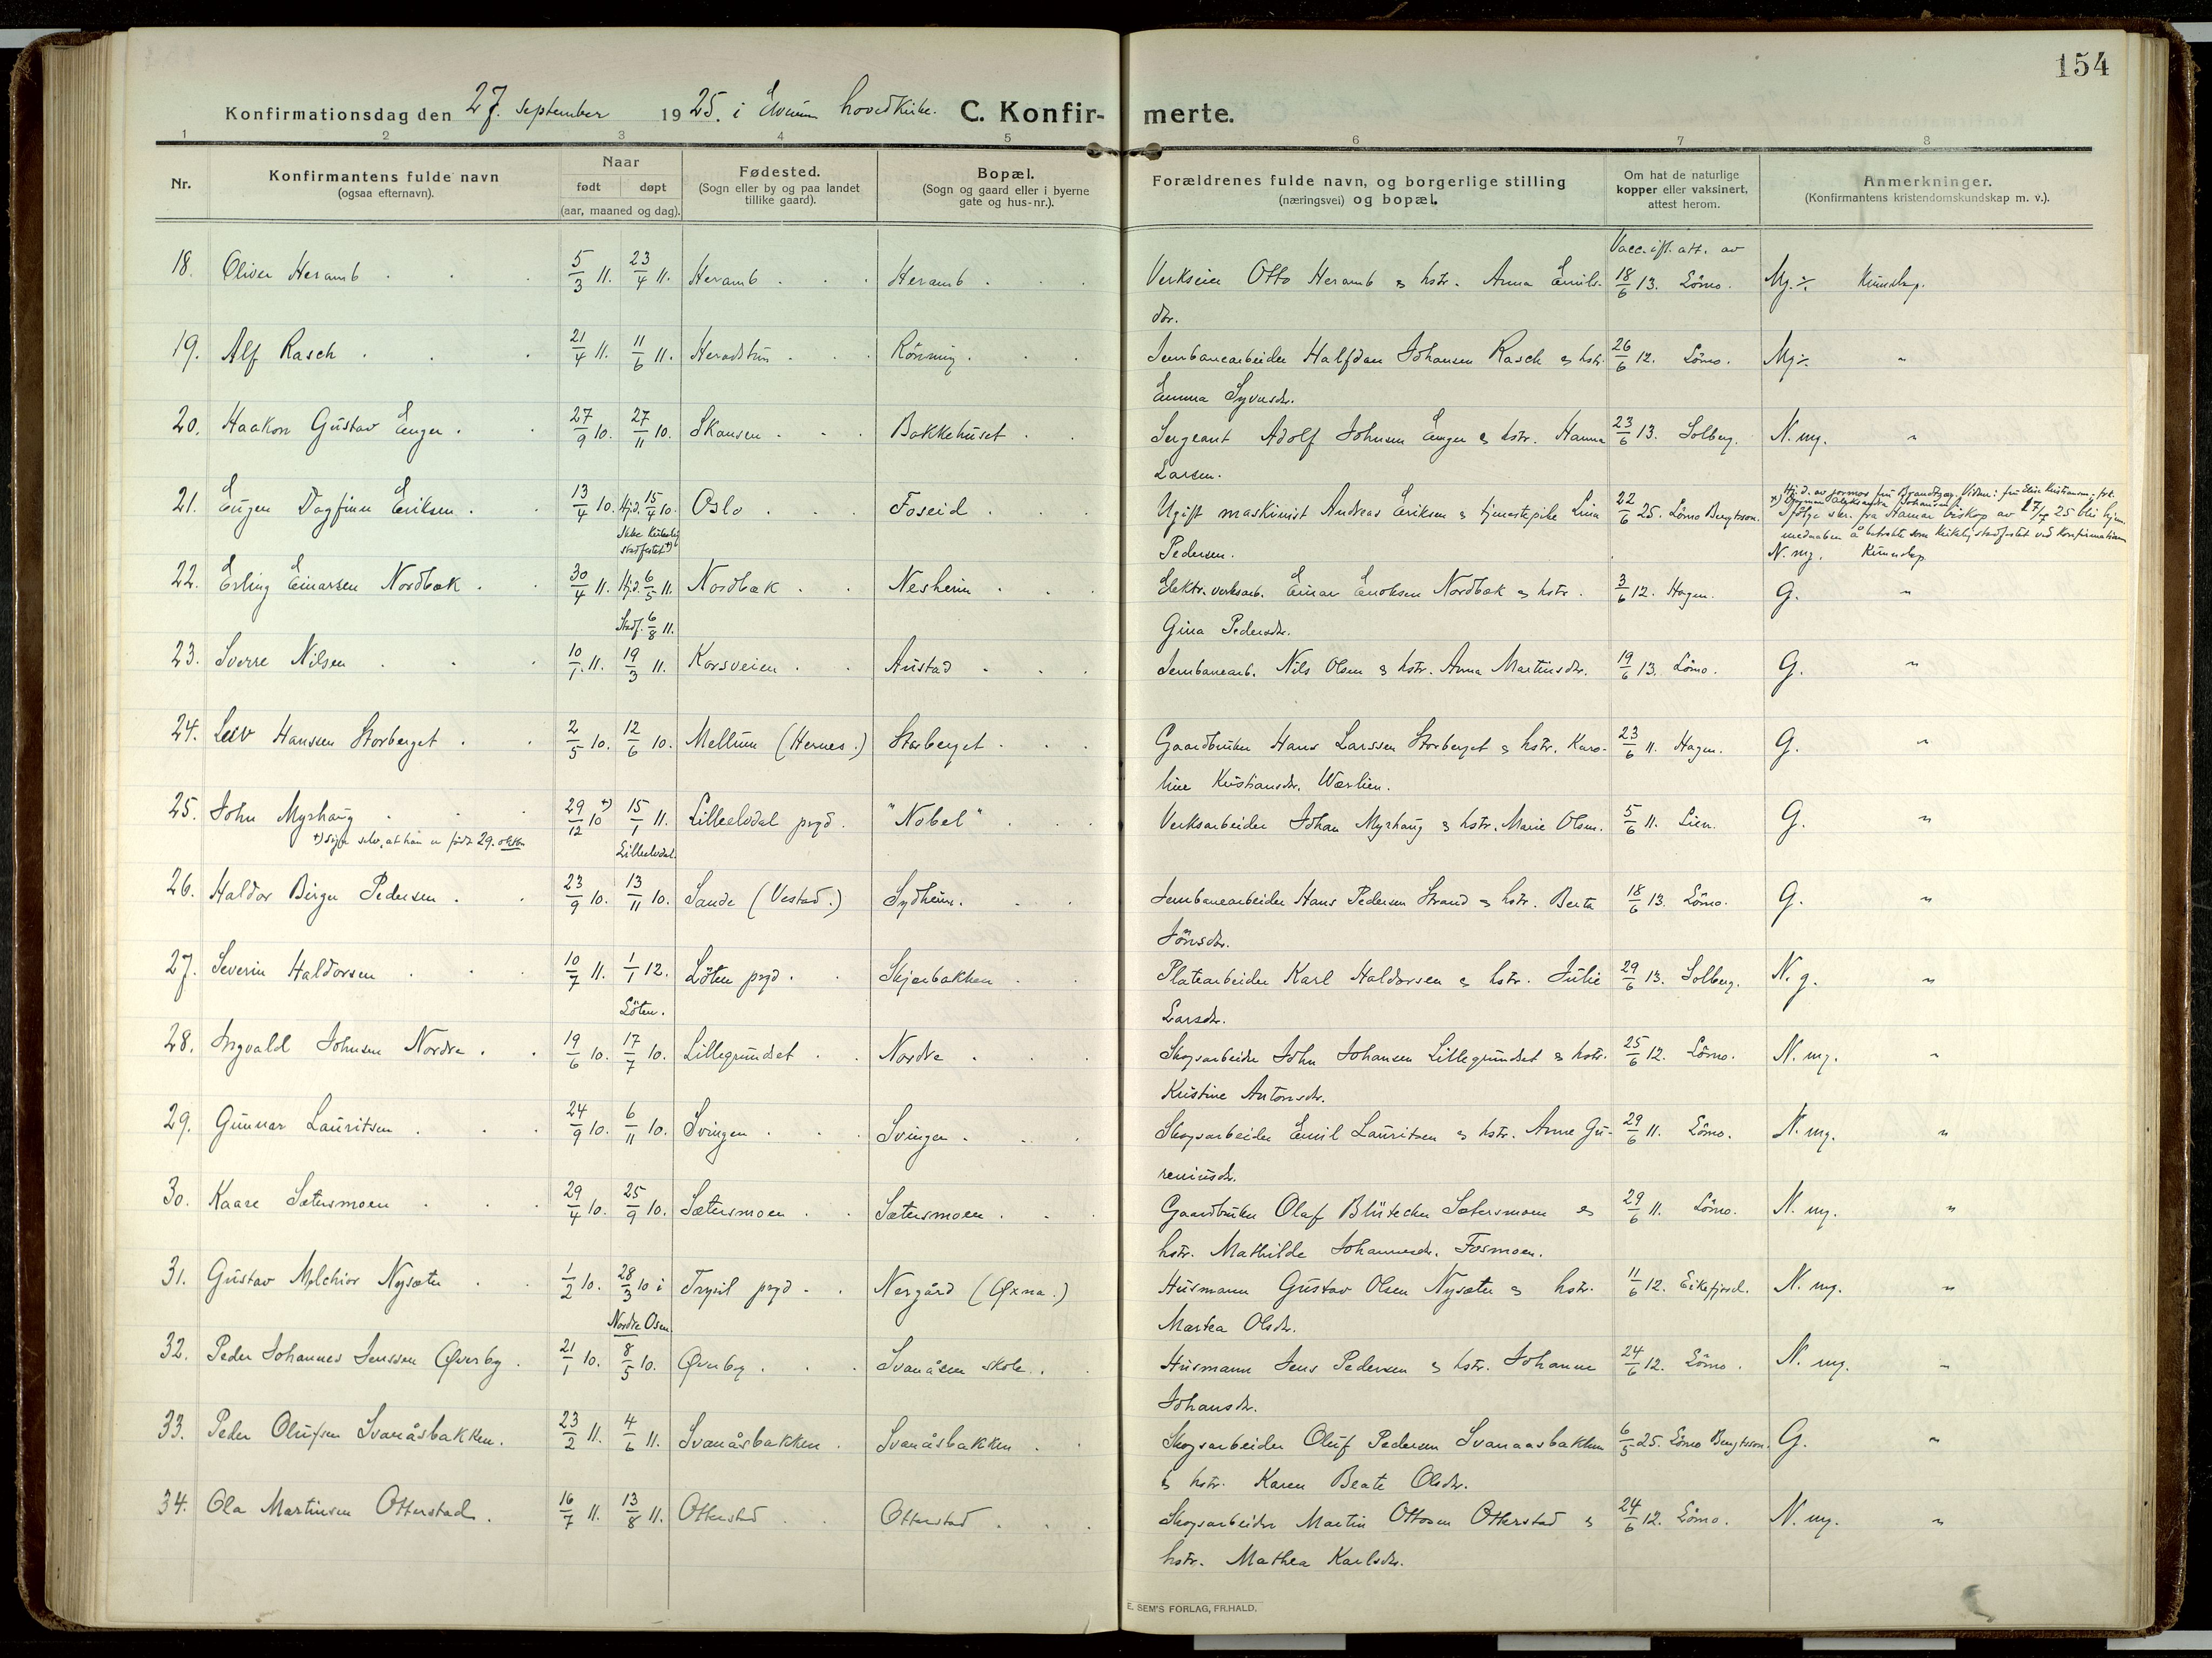 154
Konfirmationsdag den 27. september 1925. i Elverum hovedkirke. C. Konfirmerte.
1 2 3 4 5 6 7 8
Nr. Konfirmantens fulde navn (ogsaa efternavn). Naar født døpt (aar, maaned og dag). Fødested. (Sogn eller by og paa landet tillike gaard). Bopæl. (Sogn og gaard eller i byerne gate og hus-nr.). Forældrenes fulde navn, og borgerlige stilling (næringsvei) og bopæl. Om hat de naturlige kopper eller vaksinert, attest herom. Anmerkninger. (Konfirmantens kristendomskundskap m. v.).
Vacc. ifl. att. av
18. Oliver Heramb 5/3 11. 23/4 11. Heramb Heramb Verkseier Otto Heramb & hstr. Anna Emils- 18/6 13. Lömo. Mg. Kundskap.
dtr.
19. Alf Rasch 21/4 11. 11/6 11. Heradstun Rönning Jernbanearbeider Halfdan Johansen Rasch & hstr. 26/6 12. Lömo. Mg. "
Emma Syversdr.
20. Haakon Gustav Enger 27/9 10. 27/11 10. Skansen Bakkehuset Sergeant Adolf Johnsen Enger & hstr. Hanna 23/6 13. Solberg. N. mg. "
Larsen.
21. Eugen Dagfinn Eriksen 13/4 10. Hj.d. 15/4 10. Oslo Foseid Ugift maskinist Andreas Eriksen & tjenestepike Lina 22/6 25. Lömo Bengtsson. +) Hj.d. av jormor fru Brandtzæg. Vidne: fru Elise Kristiansen, frk. Aleksandra Johansen.
Ikke kirkelig stadfestet +) Pedersen. Ifölge skr. fra Hamar biskop av 17/7 25 blir hjem-
medaaben å betrakte som kirkelig stadfestet ved konfirmationen
N. mg. Kundskap
22. Erling Einarsen Nordbæk 30/4 11. Hj.d. 6/5 11. Nordbæk Nesheim Elektr. verksarb. Einar Enoksen Nordbæk & hstr. 3/6 12. Hagen. G. "
Stadf. 6/8 11. Gina Pedersdr.
23. Sverre Nilsen 10/1 11. 19/3 11. Korsveien Austad Jernbanearb. Nils Olsen & hstr. Anna Martinsdr. 19/6 13. Lömo. G. "
24. Leiv Hanssen Storberget 2/5 10. 12/6 10. Mellum (Hernes.) Storberget Gaardbruker Hans Larssen Storberget & hstr. Karo- 23/6 11. Hagen. G. "
line Kristiansdr. Wærlien.
25. John Myrhaug 29/12 10 +) 15/1 11. Lilleelvdal prgd. "Nobel" Verksarbeider Johan Myrhaug & hstr. Marie Olsen. 5/6 11. Lien. G. "
+) sier selv, at han er född 29. oktbr. Lilleelvdal.
26. Haldor Birger Pedersen 23/9 10. 13/11 10. Sande (Vestad.) Sydheim. Jernbanearbeider Hans Pedersen Strand & hstr. Berta 18/6 13. Lömo. G. "
Jönsdr.
27. Severin Haldorsen 10/7 11. 1/1 12. Löten prgd. Skjærbakken Platearbeider Karl Haldorsen & hstr. Julie 29/6 13. Solberg. N. g. "
Löten. Larsdr.
28. Ingvald Johnsen Nordre 19/6 10. 17/7 10. Lillegrundset Nordre Skogsarbeider John Johansen Lillegrundset & hstr. 25/6 12. Lömo. N. mg. "
Kristine Antonsdr.
29. Gunnar Lauritsen 24/9 10. 6/11 10. Svingen Svingen Skogsarbeider Emil Lauritsen & hstr. Anne Gu- 29/6 11. Lömo. N. mg. "
reniusdr.
30. Kaare Sætersmoen 29/4 10. 25/9 10. Sætersmoen Sætersmoen Gaardbruker Olaf Blütecher Sætersmoen & 29/6 11. Lömo. N. mg. "
hstr. Mathilde Johannesdr. Fosmoen.
31. Gustav Melchior Nysæter 1/2 10. 28/3 10 i Trysil prgd. Nergård (Øxna.) Husmann Gustav Olsen Nysæter & hstr. 11/6 12. Eikefjord. N. mg. "
Nordre Osen. Martea Olsdr.
32. Peder Johannes Jenssen Øverby 21/1 10. 8/5 10. Øverby Svanåsen skole. Husmann Jens Pedersen & hstr. Johanne 24/6 12. Lömo. N. mg. "
Johansdr.
33. Peder Olufsen Svanåsbakken. 23/2 11. 4/6 11. Svanåsbakken Svanåsbakken Skogsarbeider Oluf Pedersen Svanaasbakken 6/5 25. Lömo Bengtsson. G. "
& hstr. Karen Beate Olsdr.
34. Ola Martinsen Otterstad. 16/7 11. 13/8 11. Otterstad Otterstad Skogsarbeider Martin Ottosen Otterstad & 24/6 12. Lömo. N. mg. "
hstr. Mathea Karlsdr.
E. SEM'S FORLAG, FR.HALD.